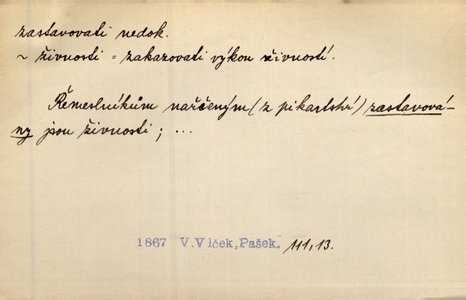 zastavovati nedok.
~ živnosti = zakazovati výkon živností.
Řemeslníkům nařčeným (z pikartství) zastavová-
ny jsou živnosti; ...
1867 V.Vlček, Pašek. 111,13.